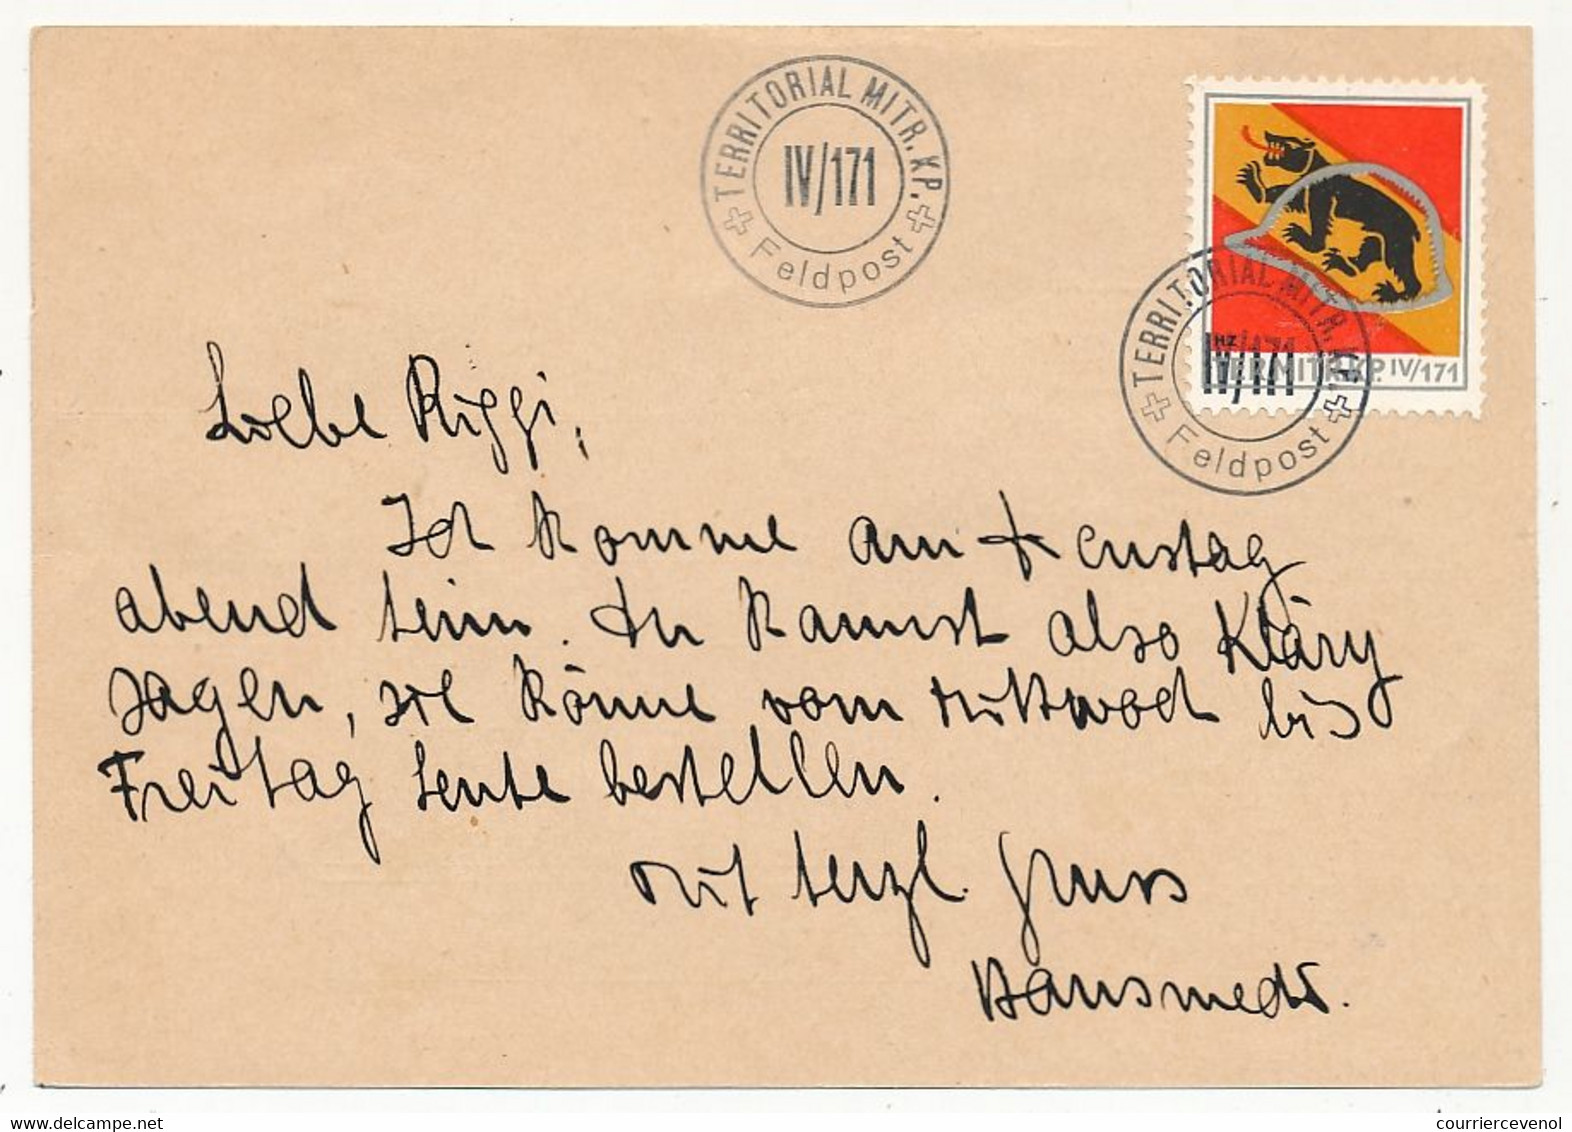 TERRITORIAL MITR. KP.
IV/171
Feldpost
TERRITORIAL MITR. KP.
IV/171
Feldpost
HZ
TER.MITR.KP. IV/171
Liebe Riggi,
Ich komme am Dienstag
abend heim. Du kannst also Kläry
sagen, sie könne vom Mittwoch bis
Freitag Leute bestellen.
Mit herzl. Gruss
courriercevenol
delcampe.net